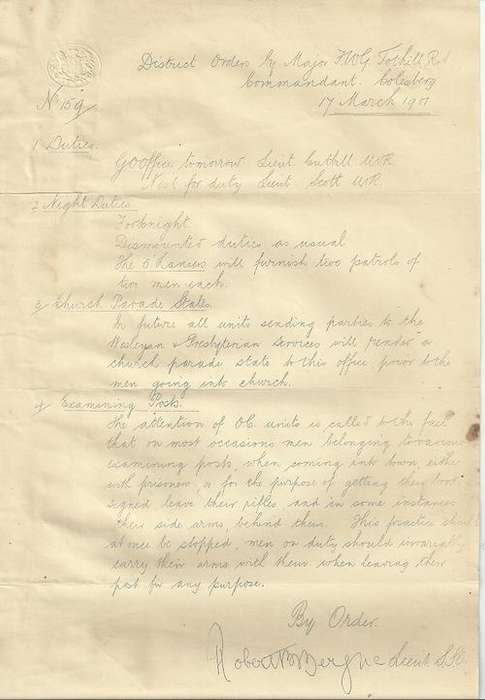 District Orders by Major
Commandant. Colesberg
No 159
17 March 1901
1 Duties.
GO Office tomorrow Lieut Cuthill WR
Next for duty Lieut Scott WR.
2 Night Duties
For tonight
Dismounted duties as usual
The 5 Lancers will furnish two patrols of
two men each.
3 Church Parade States.
In future all units sending parties to the
Wesleyan & Presbyterian services will render a
church parade state to this office prior to the
men going into church.
4 Examining Posts.
The attention of OC units is called to the fact
that on most occasions men belonging to various
examining posts, when coming into town, either
with prisoners, or for the purpose of getting their books
signed leave their rifles, and in some instances
their side arms, behind them. This practice should
at once be stopped, men on duty should invariably
carry their arms with them when leaving their
post for any purpose.
By Order.
Robert Bergne Lieut